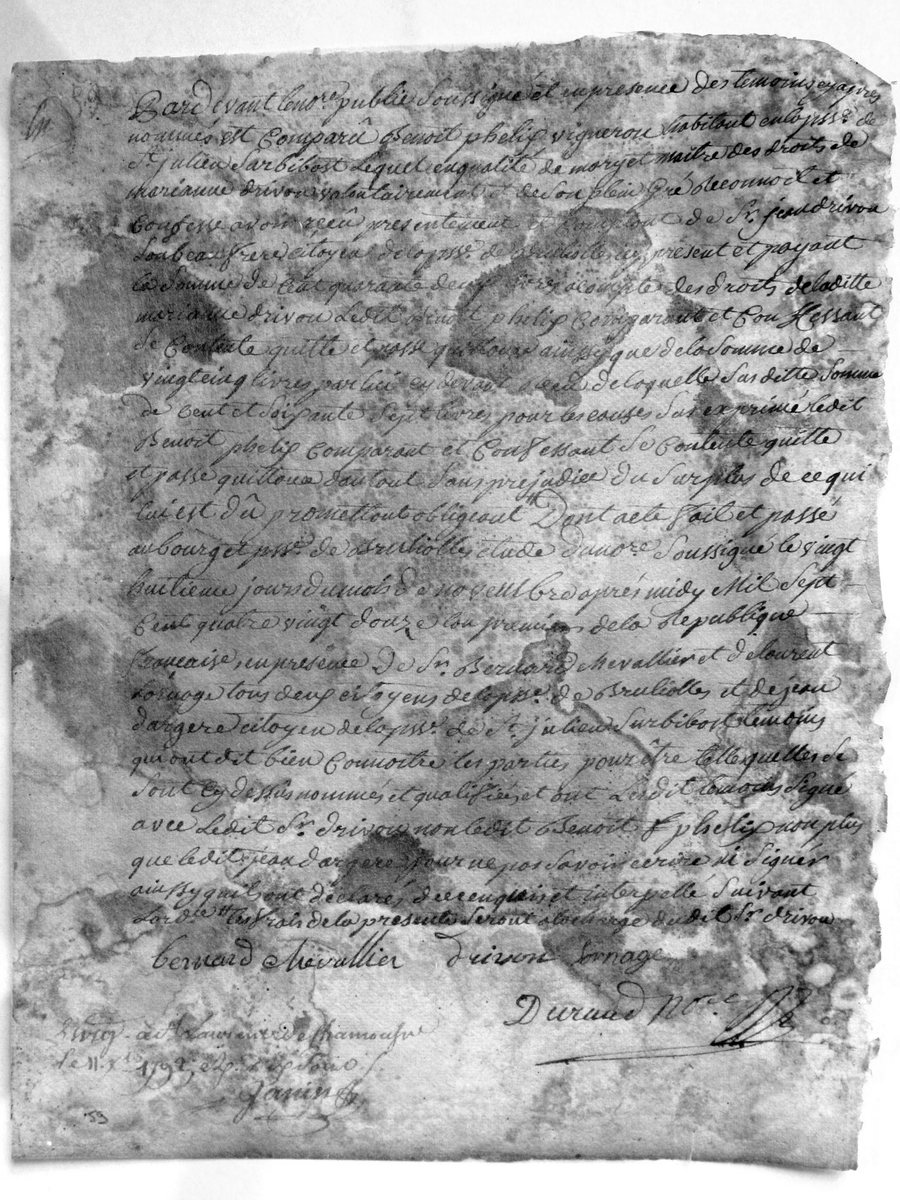 Pard evant lenore. public Soussigné et en presence des temoins cyapres
nommés est Comparû Benoit phelip vigneron habitant en la psse. de
St. julien Surbibost Lequel en qualité de mary et maitre des droits de
marianne drivon volontairement et de Son plein Gré Reconnoit et
Confesse avoir reçû presentement et Comptant de Sr. jean drivon
Son beau frere citoyen de la psse. de Brulliolles cy present et payant
la Somme de Cent quarante deux livres acompte des droits de laditte
marianne drivon Ledit Benoit phelip Comparant et Confessant
Se Contente quitte et passe quittance ainssy que de la Somme de
vingt cinq livres par lui cy devant de laquelle Sus ditte Somme
de Cent et Soixante Sept livres pour les causes Sus exprimé ledit
Benoit phelip Comparant et Confessant Se Contente quitte
et passe quittance dautant Sans prejudice du Surplus de ce qui
lui est dû promettant obligeant Dont acte fait et passé
au bourg et psse. de Brulliolles etude dunore. Soussigné le vingt
huitieme jours du mois de novembre aprés midy Mil Sept
Cent quatre vingt douze lan premier de la Republique
française, en presence de Sr. Bernard Chevallier et de laurent
Lornage tous deux citoyens de la psse. de Brulliolles et de jean
dargere citoyen de la psse. de St. julien Surbibost temoins
qui ont dit bien Connoitre les parties pour être telle quelles Se
Sont Cy dessus nommés et qualifiées et ont Lesdit temoins Signé
avec Ledit Sr. drivon non ledit Benoit phelip non plus
que ledit jean dargere pour ne pas Savoir écrire ni Signer
ainssy quils ont déclarés de ce enquis et interpellé Suivant
Lordce. les frais de la presente Seront alacharge dudit Sr. drivon
bernard chevallier drivon Lornage
Durand Nore.
a St. Laurent de Chamousset
le 11. Xbre. 1792,
Janin
53